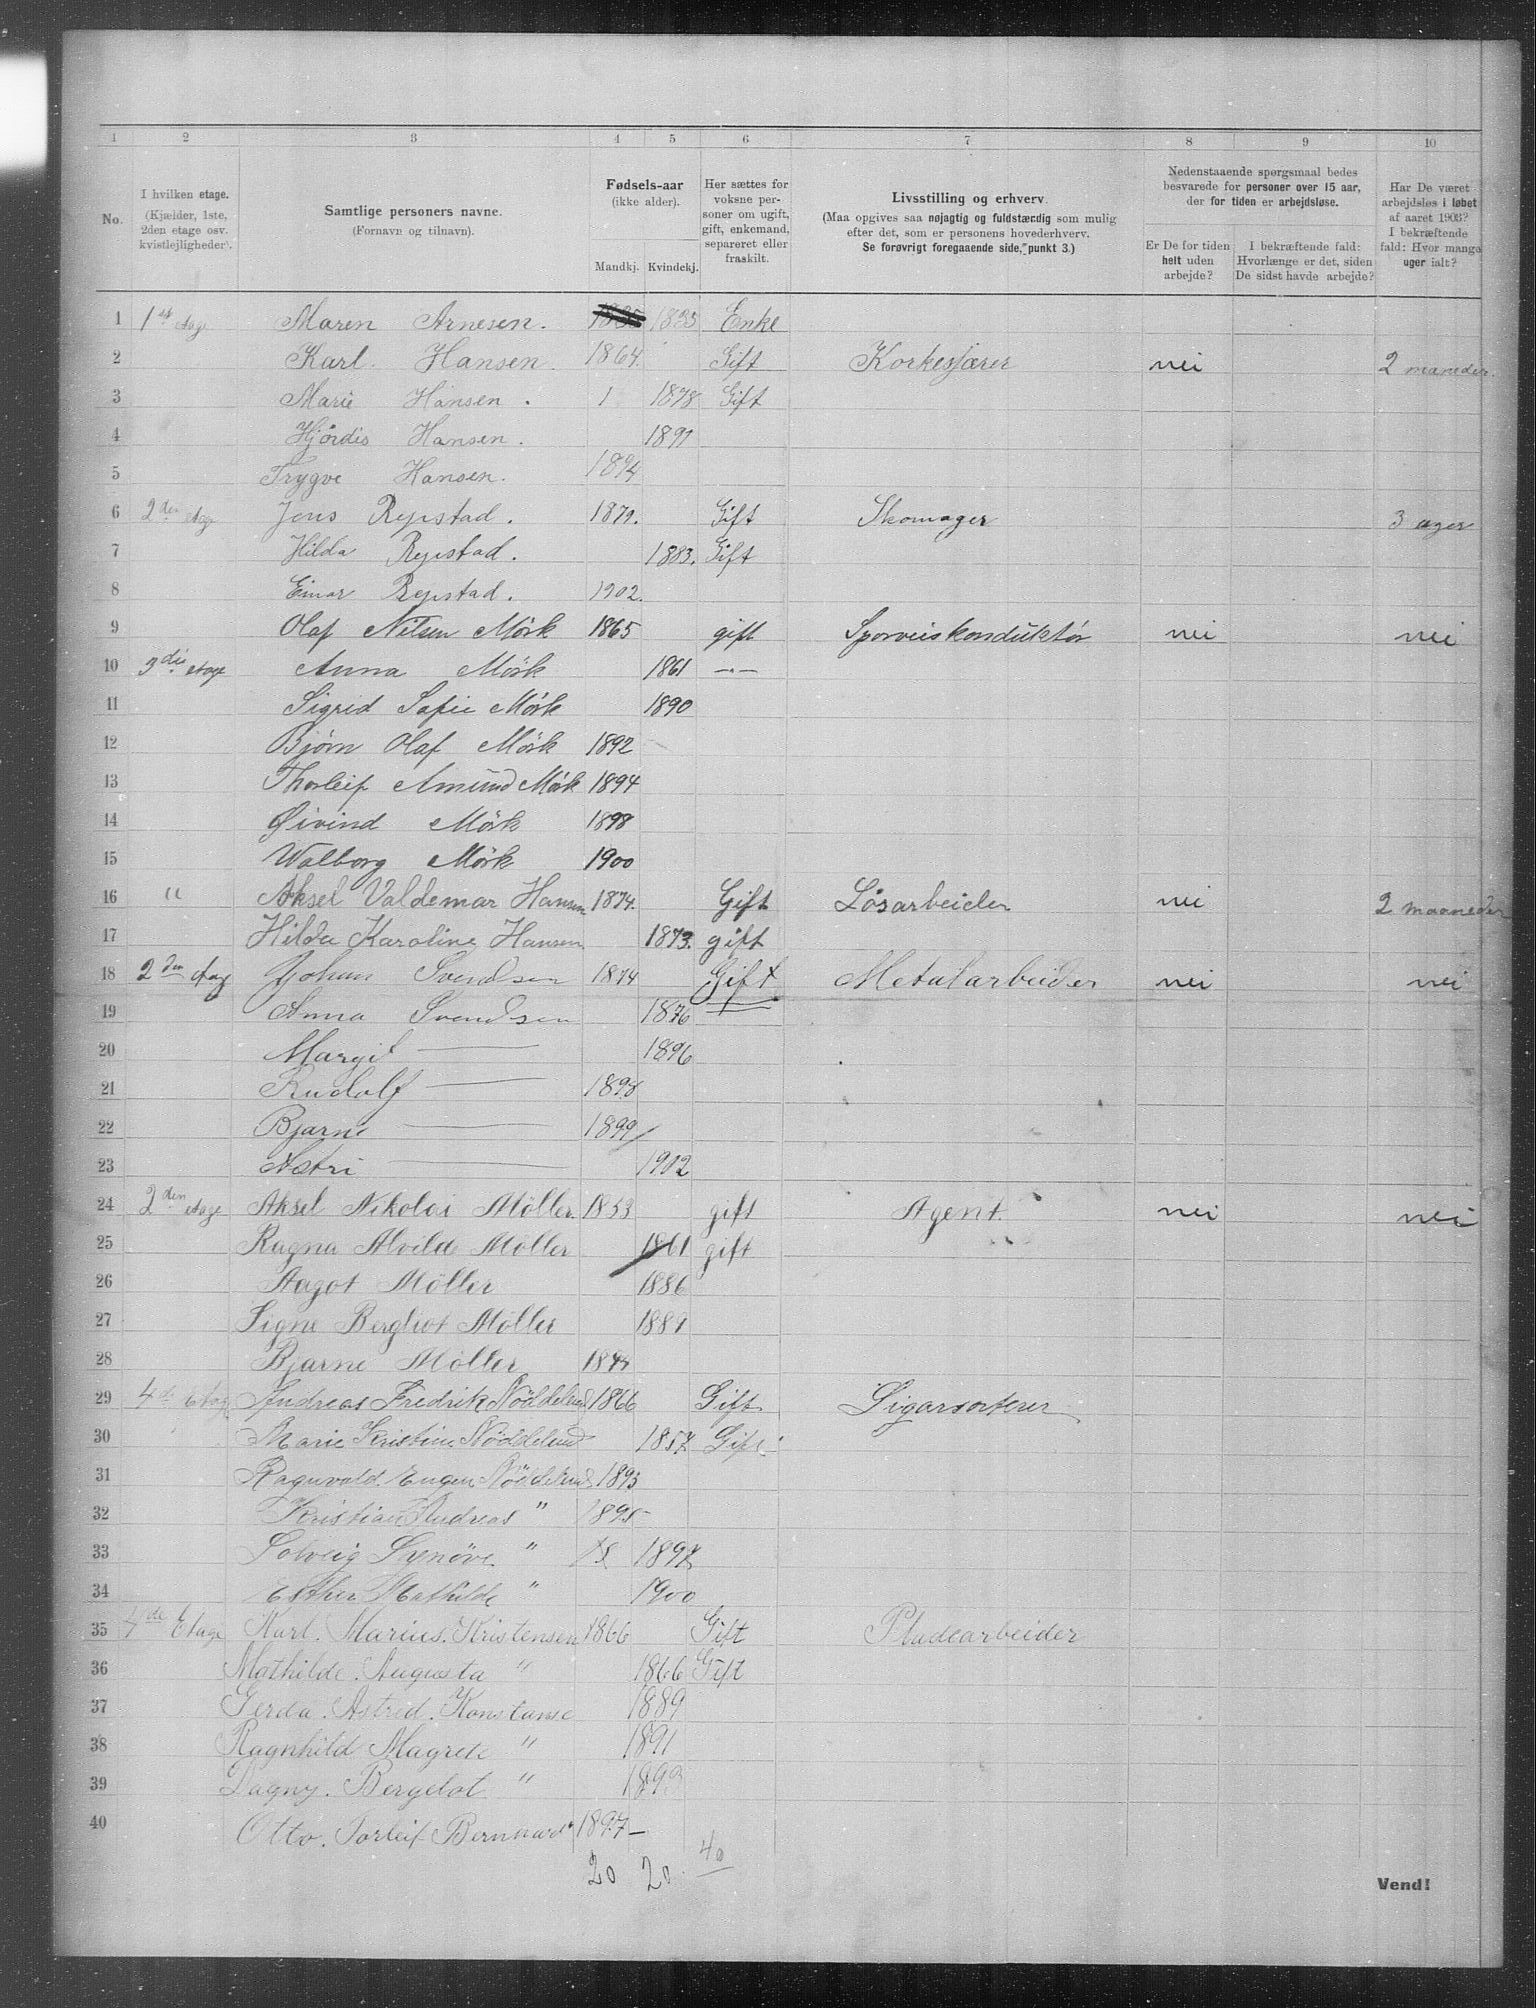 1 2 3 4 5 6 7 8 9 10
No.
I hvilken etage.
(Kjælder, 1ste,
2den etage osv.
kvistlejligheder).
Samtlige personers navne.
(Fornavn og tilnavn).
Fødsels-aar
(ikke alder).
Mandkj. Kvindekj.
Her sættes for
voksne per-
soner om ugift,
gift, enkemand,
separeret eller
fraskilt.
Livsstilling og erhverv.
(Maa opgives saa nøjagtig og fuldstændig som mulig
efter det, som er personens hovederhverv.
Se forøvrigt foregaaende side, punkt 3.)
Nedenstaaende spørgsmaal bedes
besvarede for personer over 15 aar,
der for tiden er arbejdsløse.
Er De for tiden
helt uden
arbejde?
I bekræftende fald:
Hvorlænge er det, siden
De sidst havde arbejde?
Har De været
arbejdsløs i løbet
af aaret 1903?
I bekræftende
fald: Hvor mange
uger ialt?
1 1st etage Maren Arnesen. 1835 Enke
2 Karl. Hansen. 1864. Gift Korkesjærer nei 2 maneder.
3 Marie Hansen. 1 1878 Gift
4 Hjórdis Hansen. 1891
5 Trygve Hansen. 1894
6 2den etage Jens Repstad. 1879. Gift Skomager 3 uger
7 Hilda Repstad. 1883. Gift
8 Einar Repstad. 1902.
9 Olaf Nilsen Mörk 1865 gift Sporveiskonduktør nei nei
10 3die etage Anna Mörk 1861 —"—
11 Sigrid Sofie Mörk 1890
12 Bjørn Olaf Mörk 1892
13 Thorleif Amund Mörk 1894
14 Øivind Mörk 1898
15 Walborg Mörk 1900
16 " Aksel Valdemar Hansen 1874. Gift Løsarbeider nei 2 maaneder
17 Hilda Karoline Hansen 1873. gift
18 2den etag Johan Svendsen 1874 Gift Metalarbeider nei nei
19 Anna Svendsen 1876 —
20 Margit — 1896
21 Rudolf — 1898
22 Bjarne — 1899
23 Astri — 1902
24 2den etage Aksel Nikolai Möller 1853 gift Agent. nei nei
25 Ragna Alvilde Möller 1861 gift
26 Aagot Möller 1886
27 Signe Bergliot Möller
28 Bjarne Möller
29 4de Etage Andreas Fredrik Nöddelund 1866 Gift Sigarsorterer
30 Marie Kristine Nöddelund 1857 Gift
31 Ragnvald. Eugen Nöddelund 1893
32 Kristian Andreas " 1895
33 Solveig Synöve " 18 1897
34 Esther Mathilde " 1900
35 4de Etage Karl. Marius. Kristensen 1866 Gift Pladearbeider
36 Mathilde. Augusta " 1866 Gift
37 Gerda. Astrid. Konstanse 1889
38 Ragnhild Magrete " 1891
39 Dagny. Bergelot " 1893
40 Otto. Torleif Bernhard " 1897 —
20 20 40
Vend!